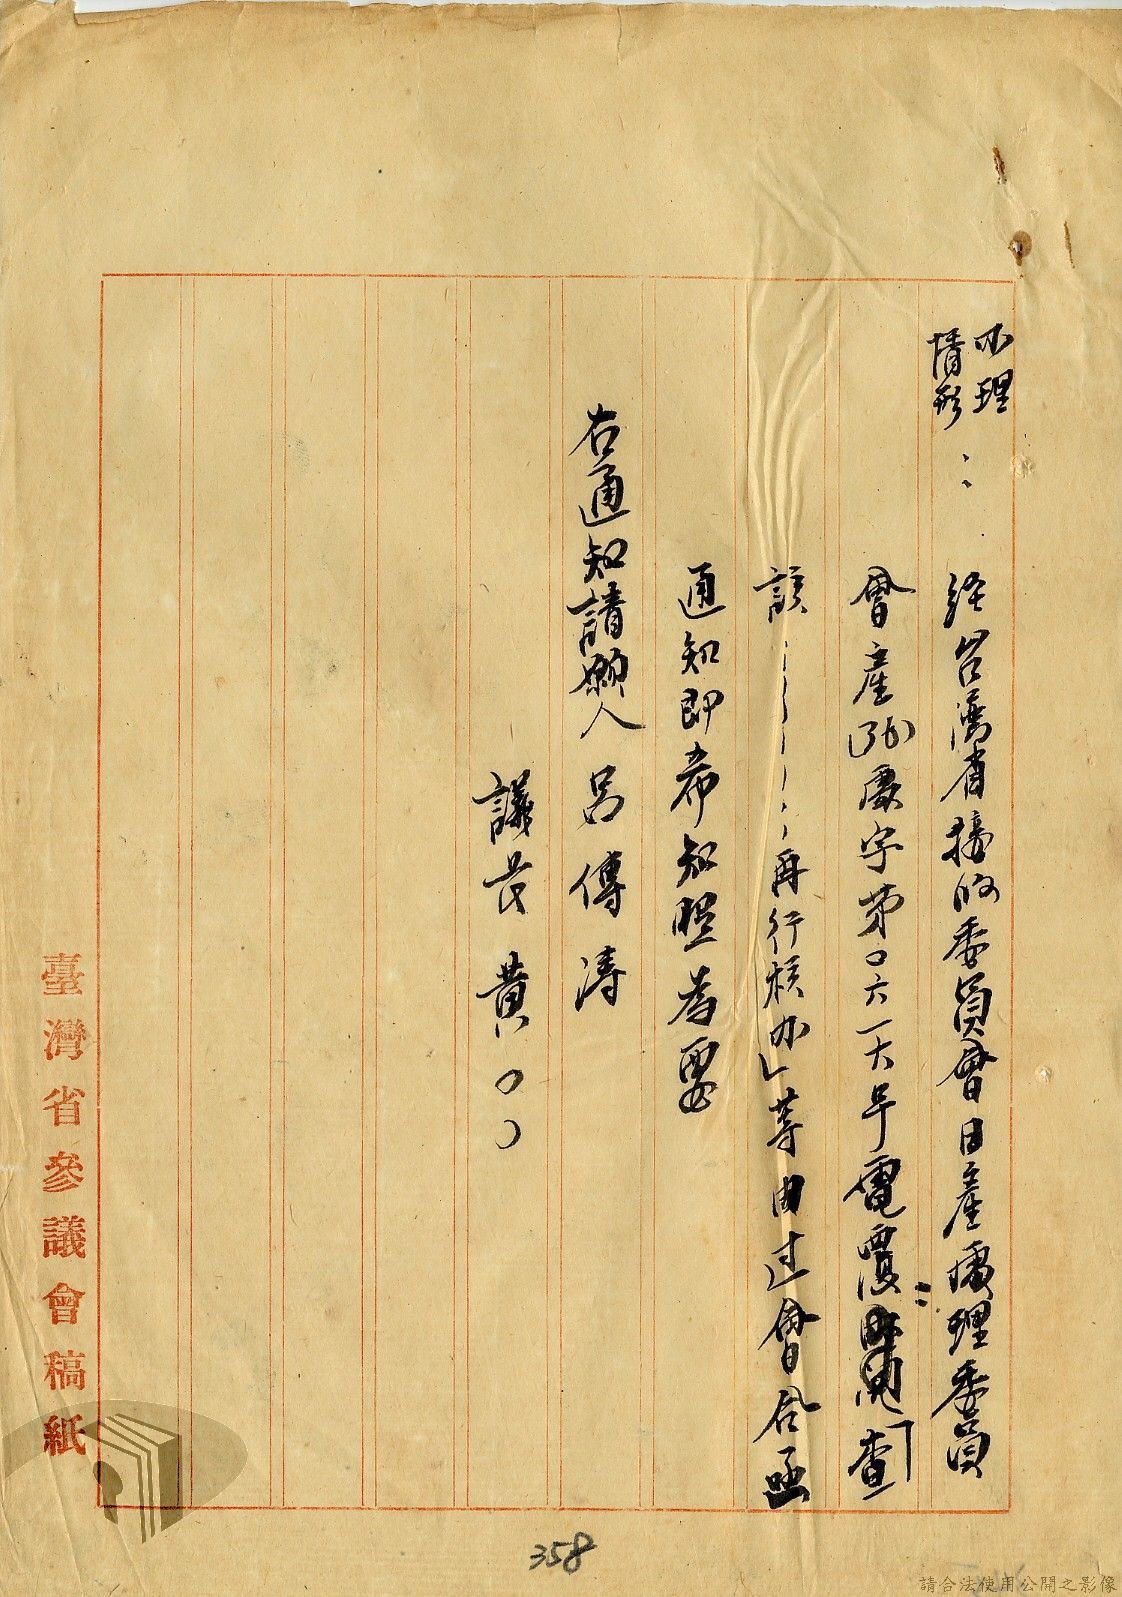 办理
情形：
經台灣省接收委員會日產處理委員
會產(36)處字第0六一六号電覆：「查
該……再行核办」等由过會合函
通知即希知照為要
右通知請願人 呂傳濤
議長 黃○○
臺灣省參議會稿紙
358
請合法使用公開之影像